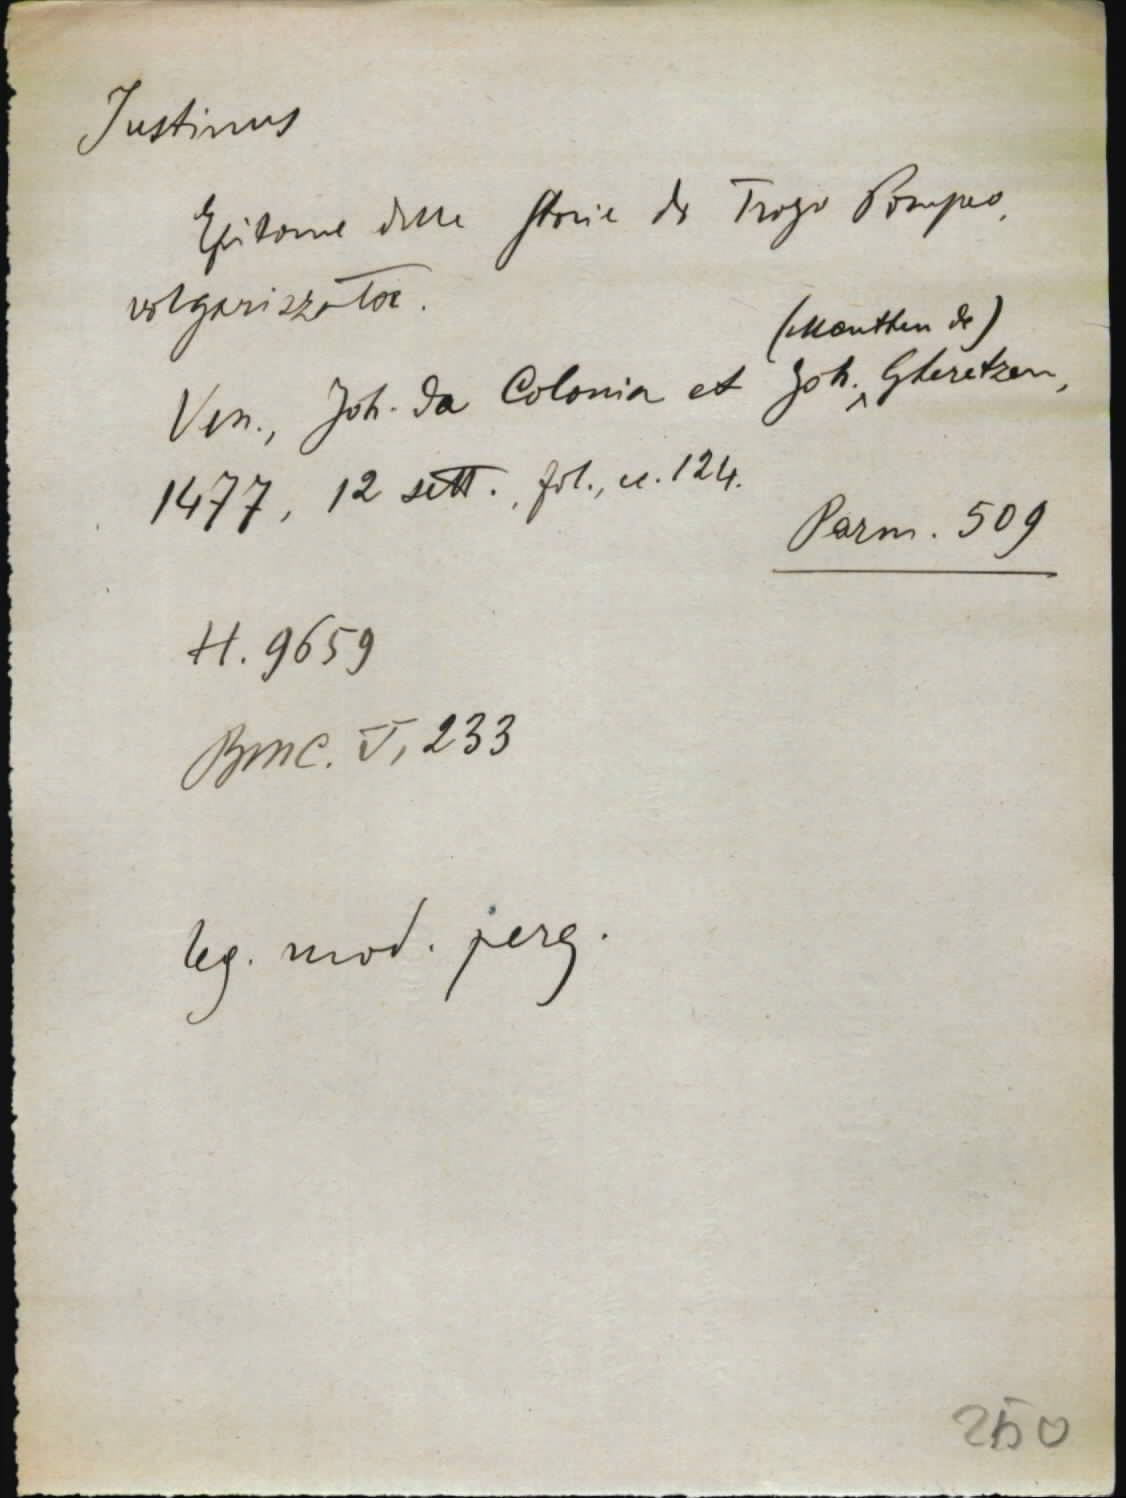 Justinus
Epitome delle Storie di Trogo Pompeo,
volgarizzator.
(Manthen de)
Ven., Joh. da Colonia et Joh. ^ Gheretzen,
1477, 12 sett., fol., cc. 124.
Parm. 509
H. 9659
BMC. V, 233
leg. mod. perg.
250